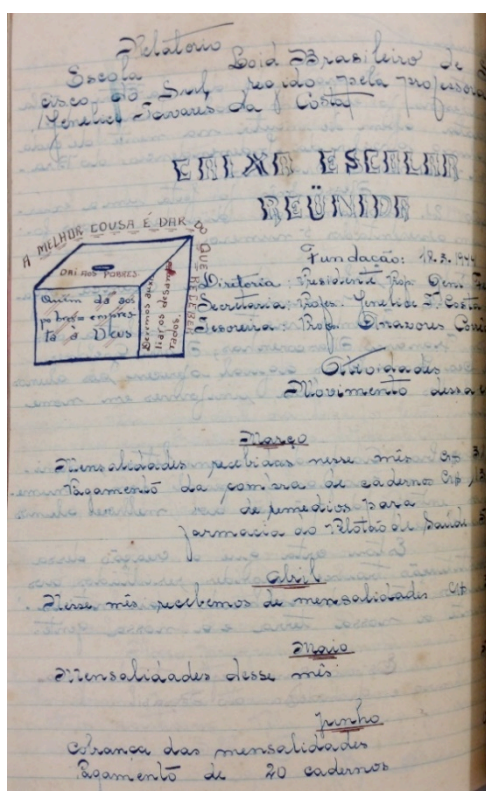 Relatorio
Escola Loid Brasileiro de
cisco do Sul, regido pela professora
Jenelice Tavares da Costa
CAIXA ESCOLAR
REÜNIDA
A MELHOR COUSA É DAR DO QUE RECEBER
DAI AOS POBRES
Quem dá aos
pobres empres
ta à Deus
Devemos auxiliar os desam
parados.
Fundação: 12.3.1944
Diretoria: Presidente, Prof.
Secretaria: Profes. Jenelide T. Costa
Tesoureira: Prof.
Atividades
Movimento dessa
Março
Mensalidades recebidas nesse mês Cr$ 3
Pagamento da compra de cadernos Cr$
de remedios para
farmacia do Pelotão de Saúde
Abril
Nesse mês recebemos de mensalidades Cr$
Maio
Mensalidades desse mês
Junho
Cobrança das mensalidades
Pagamento de 20 cadernos